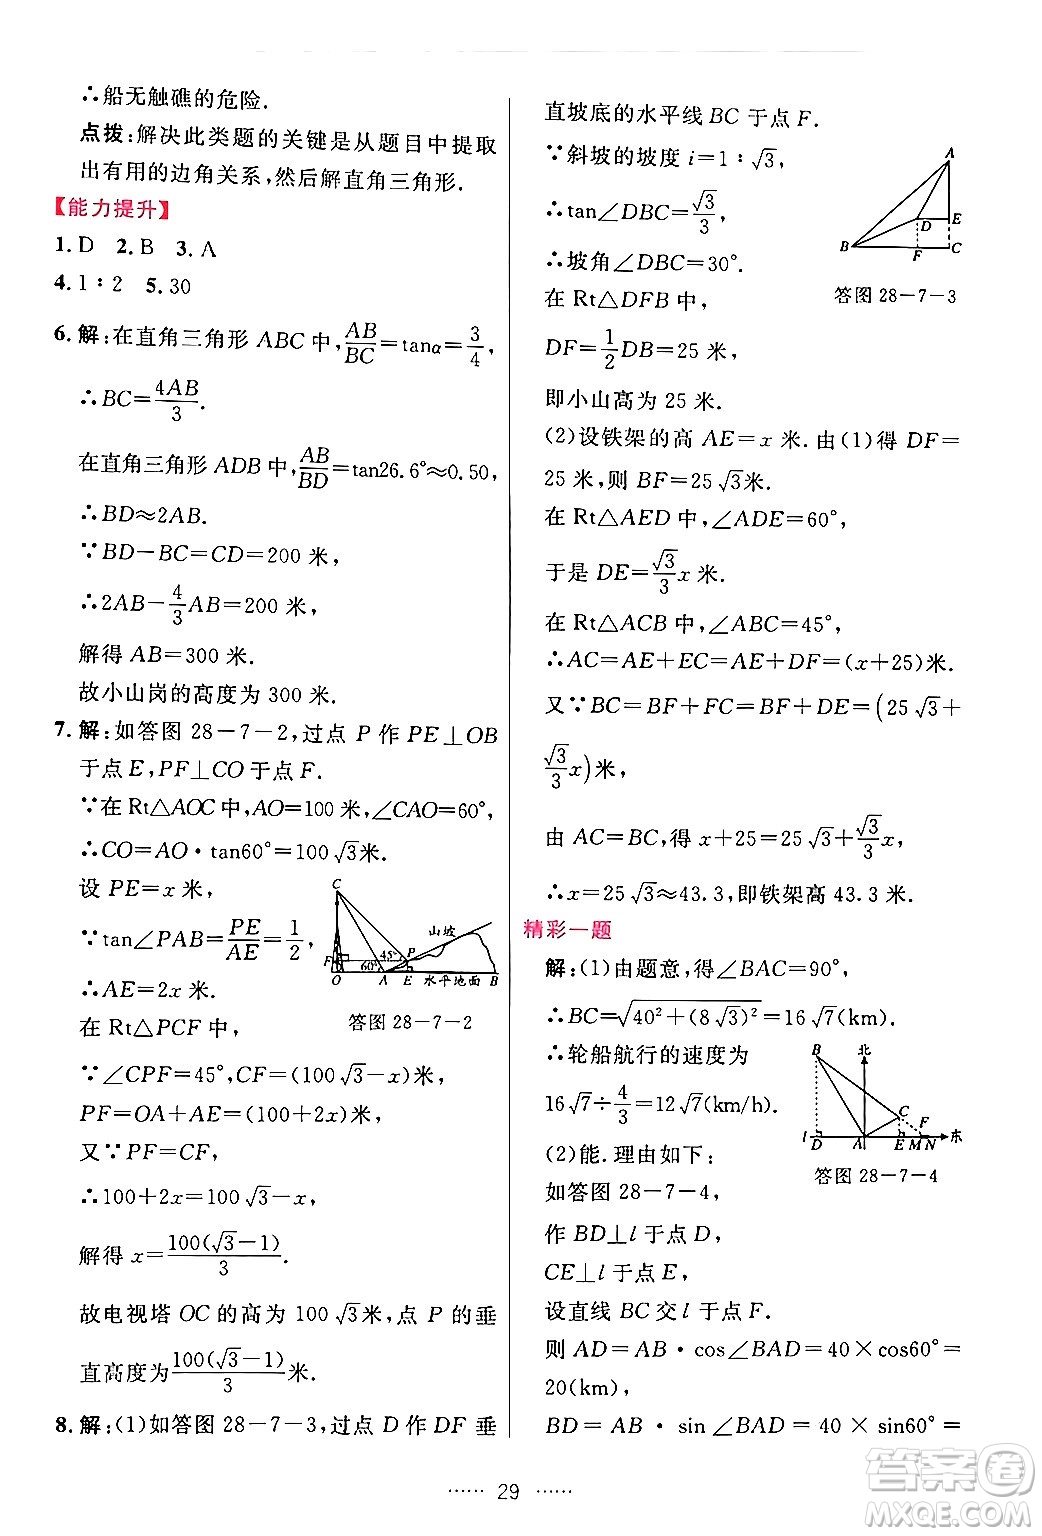 ∴船无触礁的危险.
点拨:解决此类题的关键是从题目中提取
出有用的边角关系,然后解直角三角形.
【能力提升】
1.D 2.B 3.A
4.1∶2 5.30
6.解:在直角三角形 ABC 中,AB/BC=tanα=3/4,
∴BC=4AB/3.
在直角三角形 ADB 中,AB/BD=tan26.6°≈0.50,
∴BD≈2AB.
∵BD-BC=CD=200 米,
∴2AB-4/3AB=200 米,
解得 AB=300 米.
故小山岗的高度为 300 米.
7.解:如答图 28-7-2,过点 P 作 PE⊥OB
于点 E,PF⊥CO于点 F.
∵在 Rt△AOC 中,AO=100 米,∠CAO=60°,
∴CO=AO·tan60°=100√3米.
设 PE=x 米,
∵tan∠PAB=PE/AE=1/2,
∴AE=2x 米.
在 Rt△PCF 中,
∵∠CPF=45°,CF=(100√3-x)米,
PF=OA+AE=(100+2x)米,
又∵PF=CF,
∴100+2x=100√3-x,
解得 x=100(√3-1)/3.
故电视塔 OC 的高为 100√3米,点 P 的垂
直高度为100(√3-1)/3米.
8.解:(1)如答图 28-7-3,过点 D 作 DF 垂
C
山坡
45°
P
F
60°
O A E 水平地面 B
答图 28-7-2
直坡底的水平线 BC 于点 F.
∵斜坡的坡度 i=1∶√3,
∴tan∠DBC=√3/3,
∴坡角∠DBC=30°.
在 Rt△DFB 中,
DF=1/2DB=25 米,
即小山高为 25 米.
(2)设铁架的高 AE=x 米.由(1)得 DF=
25 米,则 BF=25√3米.
在 Rt△AED 中,∠ADE=60°,
于是 DE=√3/3x 米.
在 Rt△ACB 中,∠ABC=45°,
∴AC=AE+EC=AE+DF=(x+25)米.
又∵BC=BF+FC=BF+DE=(25√3+
√3/3x)米,
由 AC=BC,得 x+25=25√3+√3/3x,
∴x=25√3≈43.3,即铁架高 43.3 米.
A
D E
B F C
答图 28-7-3
精彩一题
解:(1)由题意,得∠BAC=90°,
∴BC=√(40²+(8√3)²)=16√7(km).
∴轮船航行的速度为
16√7÷4/3=12√7(km/h).
(2)能.理由如下:
如答图 28-7-4,
作 BD⊥l 于点 D,
CE⊥l于点 E,
设直线 BC 交 l 于点 F.
则 AD=AB·cos∠BAD=40×cos60°=
20(km),
BD=AB·sin∠BAD=40×sin60°=
B 北
C F
l D A E M N 东
答图 28-7-4
······ 29 ······
答案卷
MXQE.COM